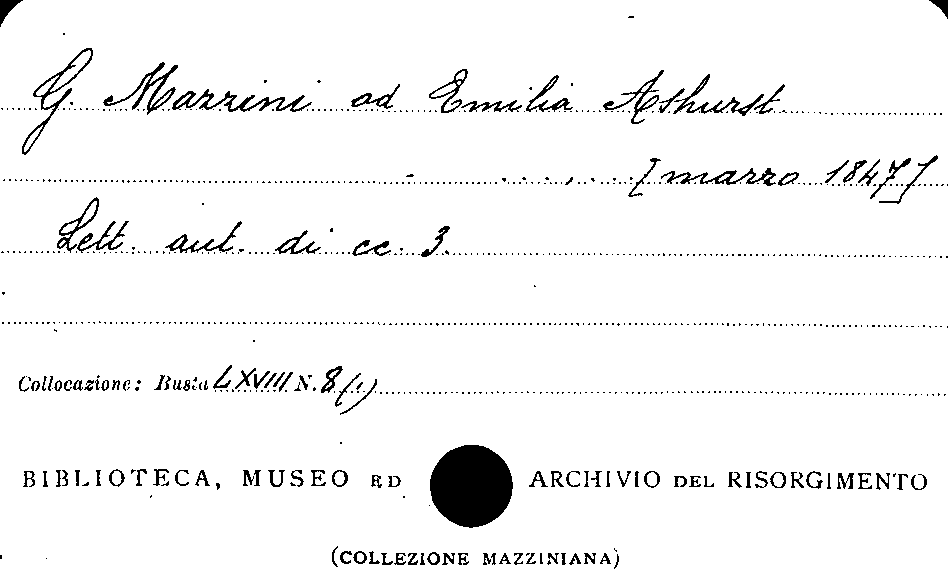 G. Mazzini ad Emilia Ashurst
- ...,...[marzo 1847]
Lett. aut. di cc. 3.
Collocazione: Busta LXVIII N. 8(1)
BIBLIOTECA, MUSEO ED ARCHIVIO DEL RISORGIMENTO
(COLLEZIONE MAZZINIANA)